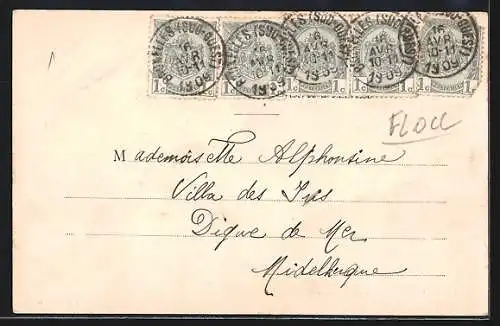 BRUXELLES (SUD-OUEST) 16 AVR 10-11 1909
BRUXELLES (SUD-OUEST) 16 AVR 10-11 1909
BRUXELLES (SUD-OUEST) 16 AVR 10-11 1909
BRUXELLES (SUD-OUEST) 16 AVR 10-11 1909
1c 1c 1c 1c 1c 1c 1c
FLOCL
Mademoiselle Alphontine
Villa des Iris
Digue de Mer
Midelkerque